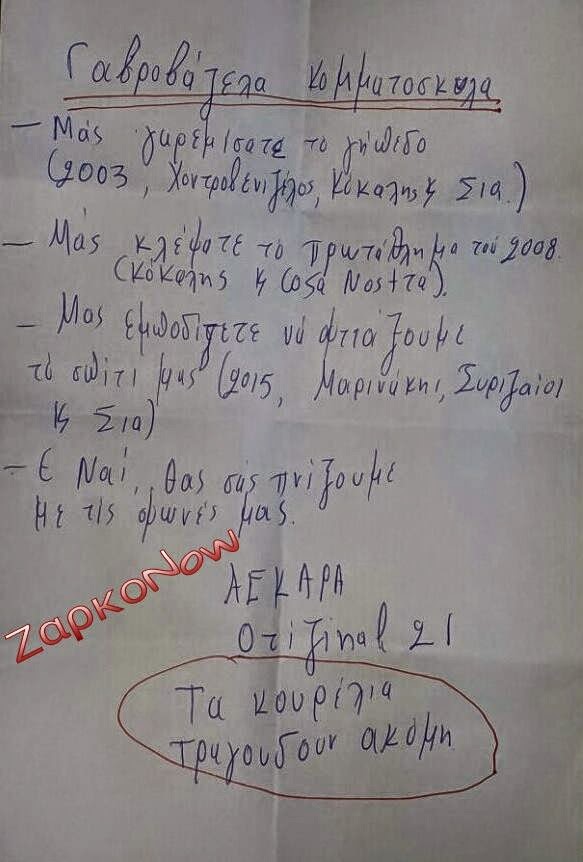 Γαβροβάζελα κομματοσκυλα
- Μάς γκρεμίσατε το γήπεδο
(2003, Χοντροβενιζέλος, Κόκαλης & Σια.)
- Μάς κλέψατε το πρωτάθλημα τού 2008.
(Κόκαλης & Cosa Nostra).
- Μας εμποδίζετε νά φτιάξουμε
τό σπίτι μας (2015, Μαρινάκη, Συριζαίοι
& Σια)
- Ε Ναί, θας σάς πνίξουμε
με τίς φωνές μας.
ZapkoNow
ΑΕΚΑΡΑ
Original 21
Τα κουρέλια
τραγουδουν ακόμη